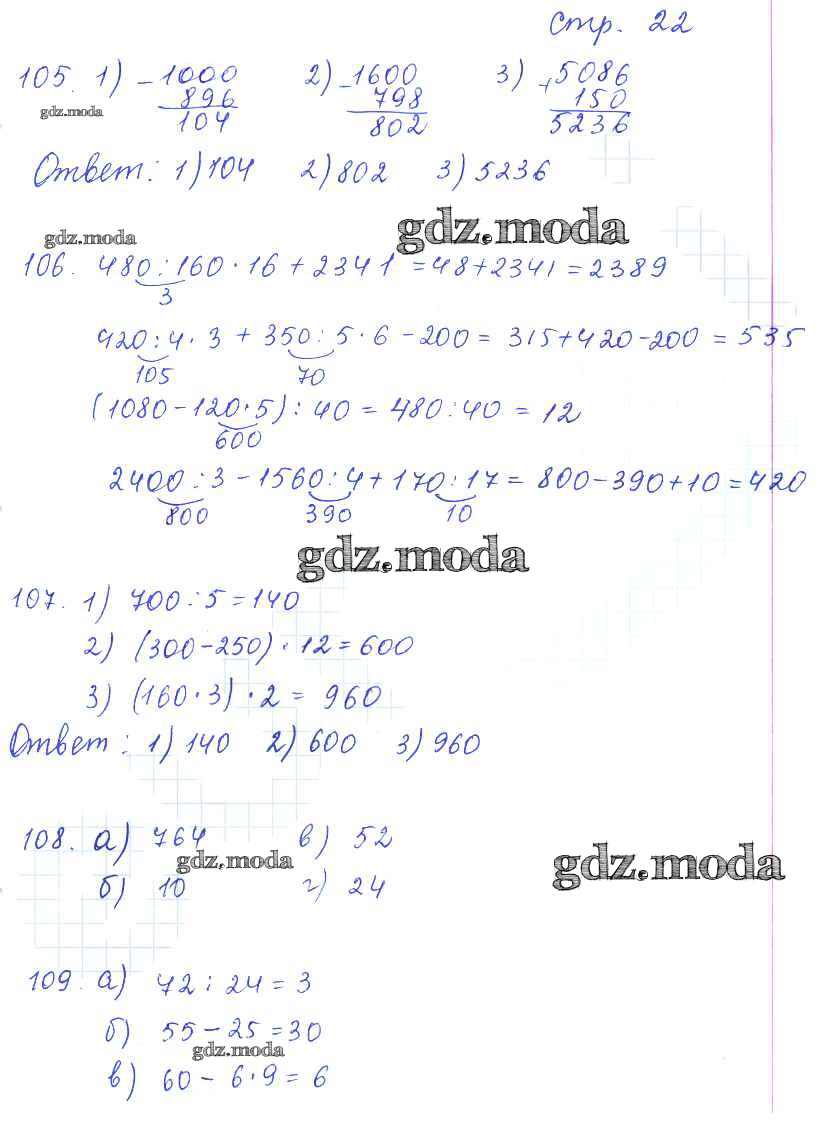 стр. 22
105. 1) – 1000 2) – 1600 3) + 5086
896 798 150
gdz.moda 104 802 5236
Ответ: 1) 104 2) 802 3) 5236
gdz.moda gdz.moda
106. 480 : 160 · 16 + 2341 = 48 + 2341 = 2389
3
420 : 4 · 3 + 350 : 5 · 6 – 200 = 315 + 420 – 200 = 535
105 70
(1080 – 120 · 5) : 40 = 480 : 40 = 12
600
2400 : 3 – 1560 : 4 + 170 : 17 = 800 – 390 + 10 = 420
800 390 10
gdz.moda
107. 1) 700 : 5 = 140
2) (300 – 250) · 12 = 600
3) (160 · 3) · 2 = 960
Ответ: 1) 140 2) 600 3) 960
108. а) 764 в) 52
gdz.moda gdz.moda
б) 10 г) 24
109. а) 72 : 24 = 3
б) 55 – 25 = 30
gdz.moda
в) 60 – 6 · 9 = 6